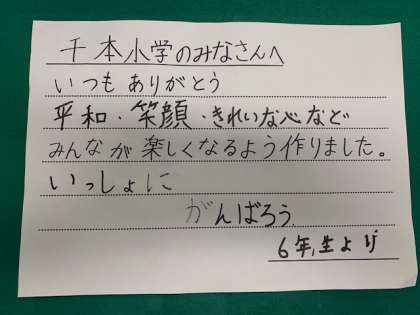 千本小学のみなさんへ
いつもありがとう
平和・笑顔・きれいな心など
みんなが楽しくなるよう作りました。
いっしょに
がんばろう
6年生より